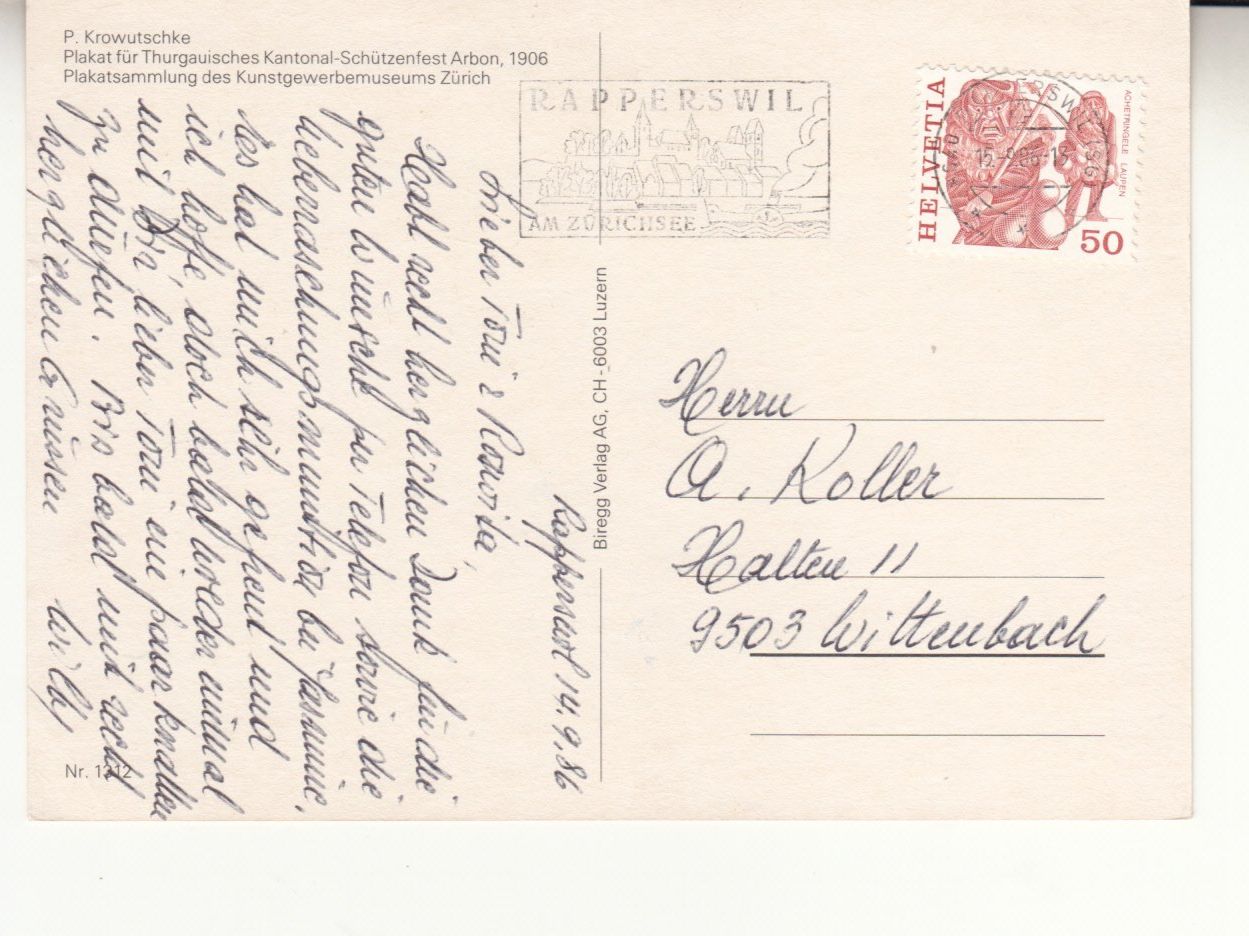 P. Krowutschke
Plakat für Thurgauisches Kantonal-Schützenfest Arbon, 1906
Plakatsammlung des Kunstgewerbemuseums Zürich
RAPPERSWIL
AM ZÜRICHSEE
HELVETIA
ACHETRINGELE LAUPEN
50
Rapperswil 14.9.86
Lieber Toni & Roswita,
Habt recht herzlichen Dank für die
guten Wünsche per Telefon sowie die
Ueberraschungsmunition bei
Das hat mich sehr gefreut und
ich hoffe doch bald wieder einmal
mit Dir, lieber Toni ein paar knallen
zu dürfen. Bis bald mit recht
herzlichen Grüssen
Willy
Nr. 1312
Biregg Verlag AG, CH-6003 Luzern
Herrn
A. Koller
Halten 11
9503 Wittenbach